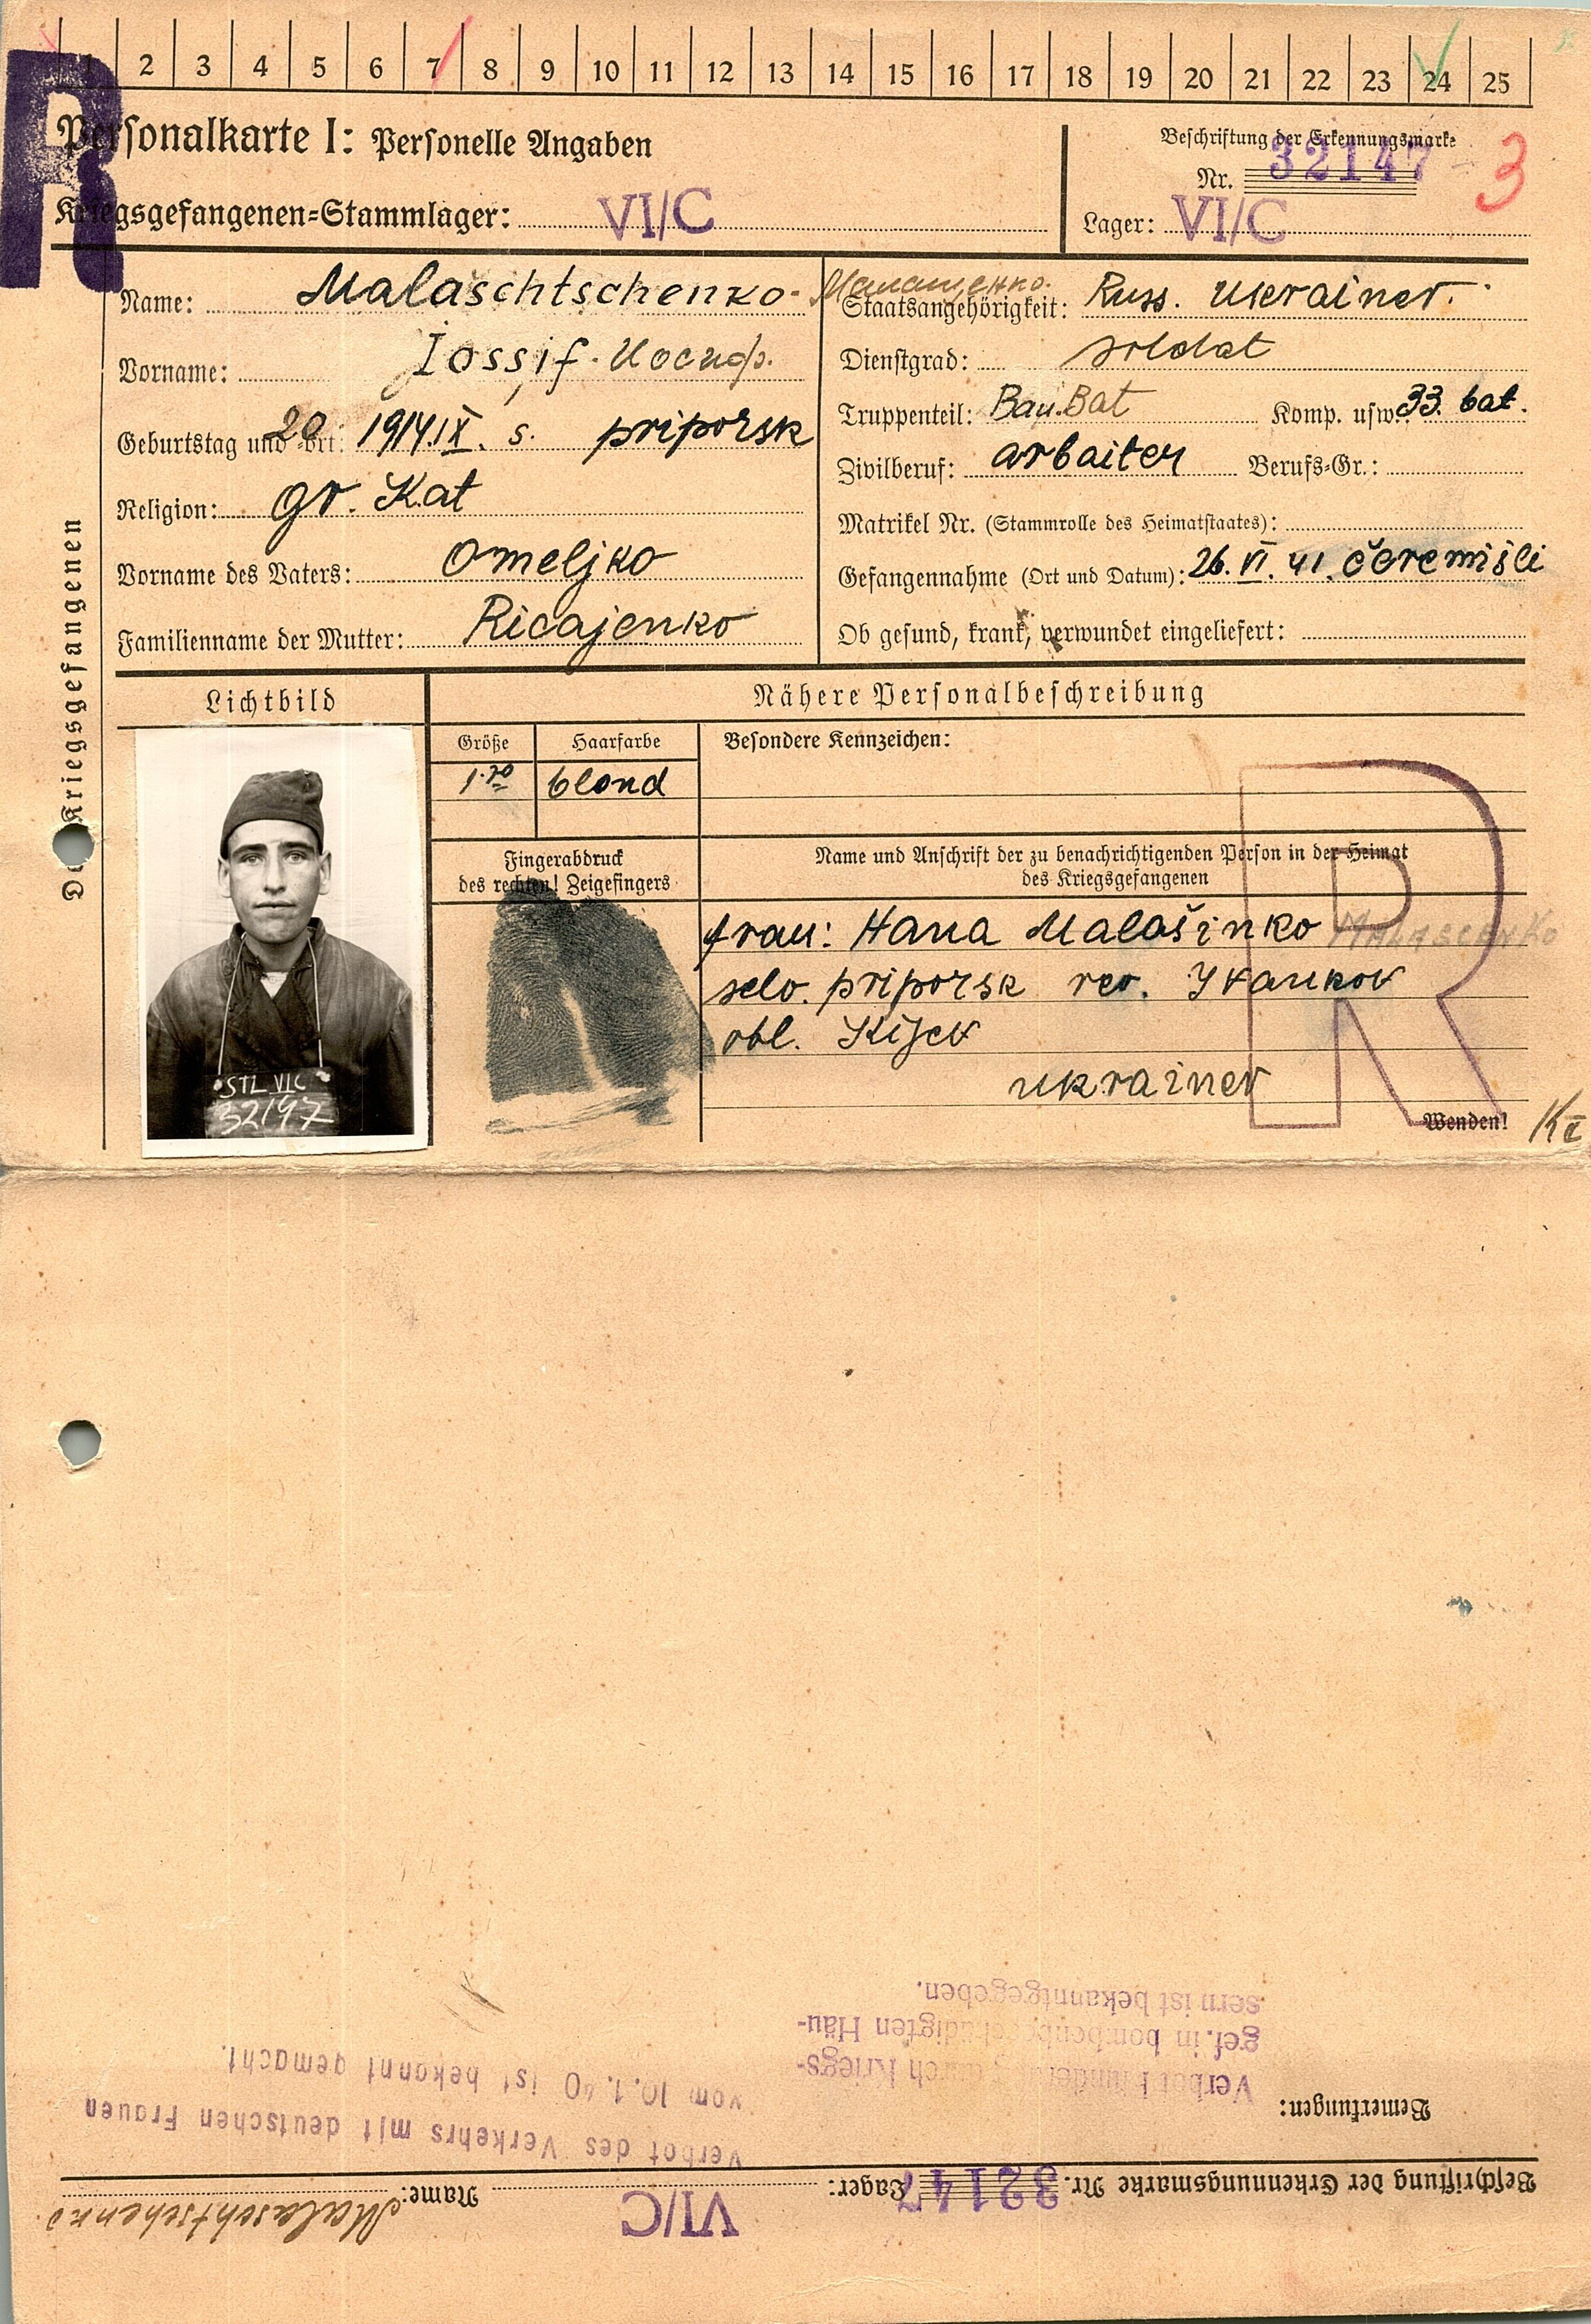 1 2 3 4 5 6 7 8 9 10 11 12 13 14 15 16 17 18 19 20 21 22 23 24 25
R
Personalkarte I: Personelle Angaben
Kriegsgefangenen=Stammlager: VI/C
Beschriftung der Erkennungsmarke
Nr. 32147 3
Lager: VI/C
Des Kriegsgefangenen
Name: Malaschtschenko- Малащенко.
Vorname: Iossif. Иосиф.
Geburtstag und =Ort: 20 1914.IX. s. priporsk
Religion: gr. Kat
Vorname des Vaters: Omeljko
Familienname der Mutter: Ricajenko
Staatsangehörigkeit: Russ. Ukrainer.
Dienstgrad: soldat
Truppenteil: Bau.Bat Komp. usw.: 33. bat.
Zivilberuf: arbaiter Berufs=Gr.:
Matrikel Nr. (Stammrolle des Heimatstaates):
Gefangennahme (Ort und Datum): 26. VI. 41. čeremišli
Ob gesund, krank, verwundet eingeliefert:
Lichtbild
STL VIC
32147
Nähere Personalbeschreibung
Größe Haarfarbe Besondere Kennzeichen:
1.70 blond
Fingerabdruck
des rechten! Zeigefingers
Name und Anschrift der zu benachrichtigenden Person in der Heimat
des Kriegsgefangenen
frau: Hana Malašinko MALASCENKO
selo. priporsk reo. Ivankov
obl. Kijev
ukrainer
R
Wenden!
Beschriftung der Erkennungsmarke Nr. 32147 Lager: VI/C Name: Malaschtschenko.
Bemerkungen:
Verbot Kriegs-
gef. in bombenbeschädigten Häu-
sern ist bekanntgegeben.
Verbot des Verkehrs mit deutschen Frauen
vom 10.1.40 ist bekannt gemacht.